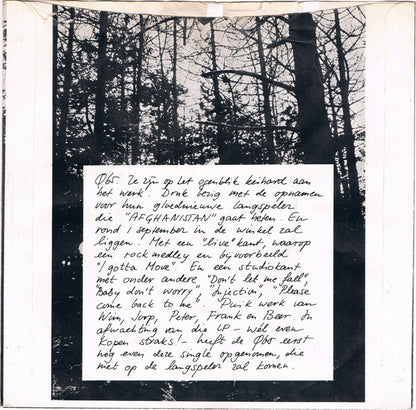 Q65. Ze zijn op het ogenblik keihard aan
het werk. Druk bezig met de opnamen
voor hun gloednieuwe langspeler
die "AFGHANISTAN" gaat heten. En
rond 1 september in de winkel zal
liggen. Met een "live" kant, waarop
een rockmedley en bijvoorbeeld
"I gotta Move". En een studiokant
met onder andere "Don't let me fall",
"Baby don't worry", "Injection", "Please
come back to me". Puik werk van
Wim, Joop, Peter, Frank en Beer. In
afwachting van die LP - wèl even
kopen straks! - heeft de Q65 eerst
nog even deze single opgenomen, die
niet op de langspeler zal komen.